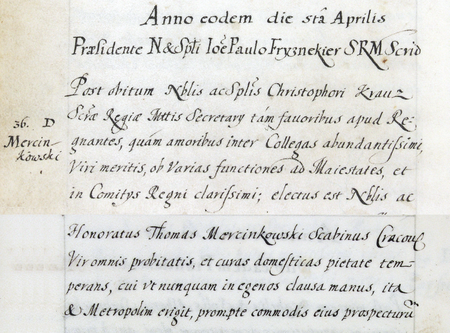 Anno eodem die 5tâ Aprilis
Præsidente N&Spli Ioẽ Paulo Fryznekier SRM Scrið
Post obitum Nblis ac Splis Christophori Krau-
Scræ Regiæ Mttis Secretary tám fauoribus apud Re-
36. D
Mercin-
kowski
gnantes, quám amoribus inter Collegas abundantissimi,
Viri meritis, ob Varias functiones ad Maiestates, et
in Comitys Regni clarissimi; electus est Nblis ac
Honoratus Thomas Mercinkowski Scabinus Cracou
Vir omnis probitatis, et curas domesticas pietate tem-
perans, cui vt nunquam in egenos clausa manus, ita
& Metropolim erigit, prompté commodis eius prospecturũ